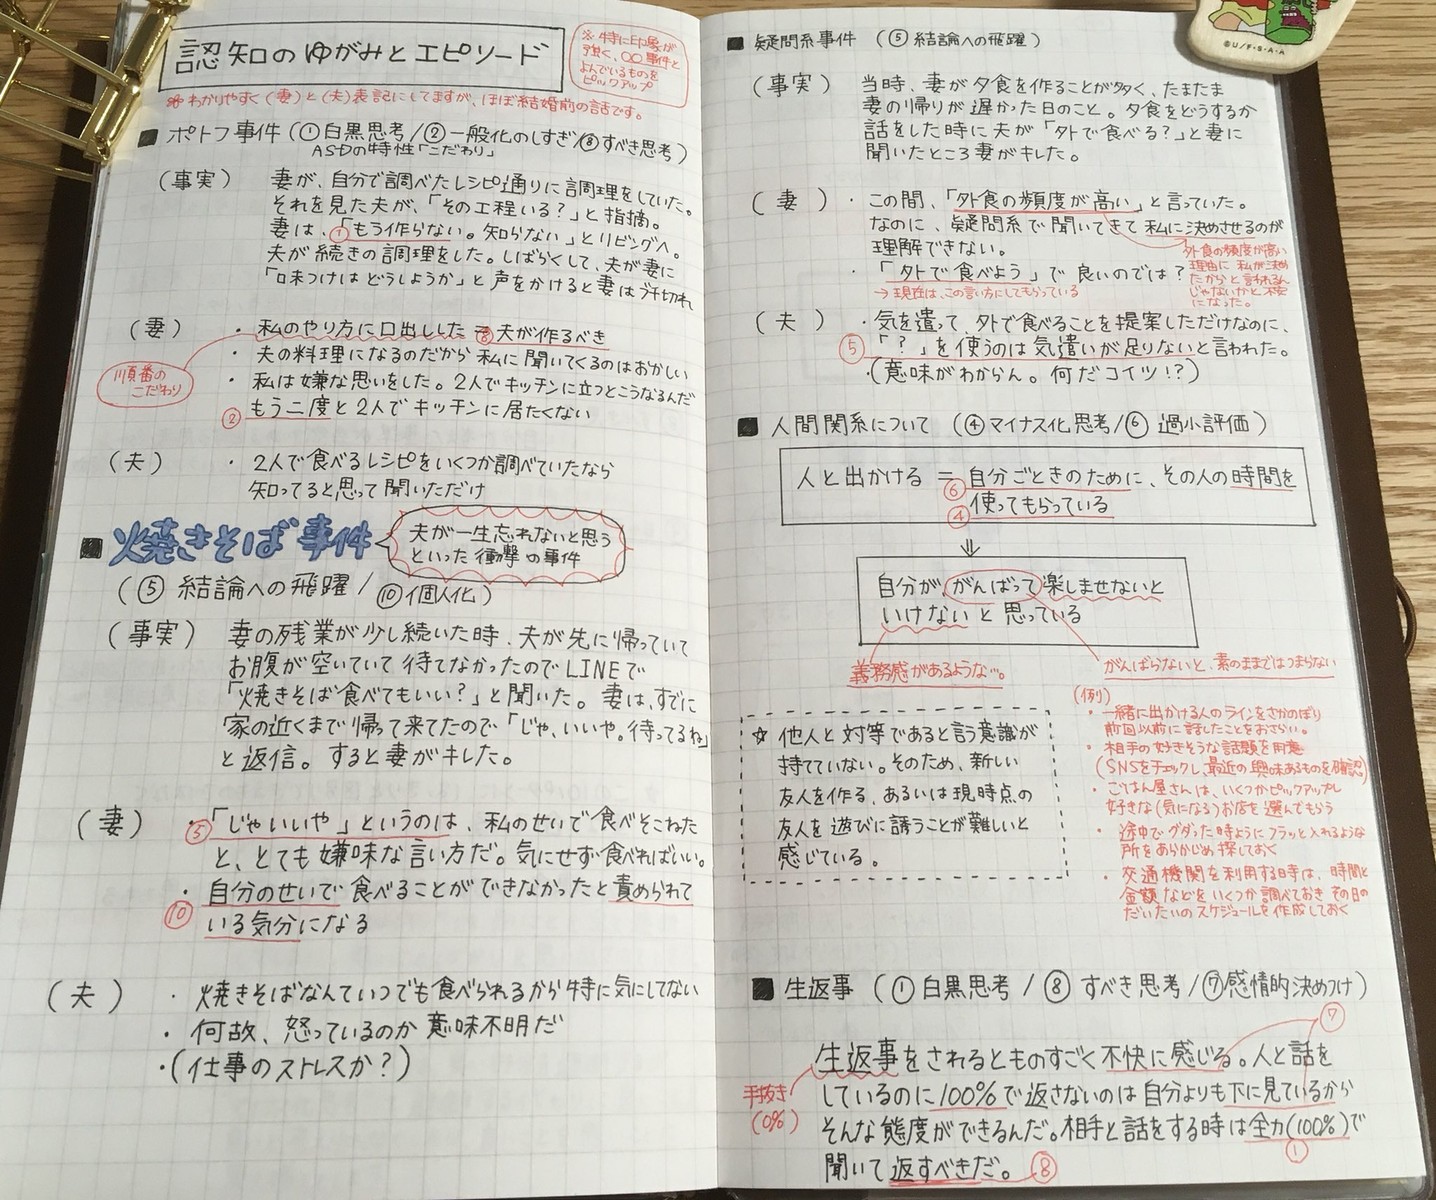 認知のゆがみとエピソード
※特に印象が
強く、〇〇事件と
よんでいるものを
ピックアップ
※わかりやすく(妻)と(夫)表記にしてますが、ほぼ結婚前の話です。
■ ポトフ事件(①白黒思考/②一般化のしすぎ/⑧すべき思考)
ASDの特性「こだわり」
(事実) 妻が、自分で調べたレシピ通りに調理をしていた。
それを見た夫が、「その工程いる?」と指摘。
妻は、①「もう作らない。知らない」とリビングへ。
夫が続きの調理をした。しばらくして、夫が妻に
「味つけはどうしようか」と声をかけると妻はブチ切れ
(妻) ・私のやり方に口出しした=⑧夫が作るべき
・夫の料理になるのだから私に聞いてくるのはおかしい
順番の
こだわり
・私は嫌な思いをした。2人でキッチンに立つとこうなるんだ
②もう二度と2人でキッチンに居たくない
(夫) ・2人で食べるレシピをいくつか調べていたなら
知ってると思って聞いただけ
■ 焼きそば事件
夫が一生忘れないと思う
といった衝撃の事件
(⑤結論への飛躍/⑩個人化)
(事実) 妻の残業が少し続いた時、夫が先に帰っていて
お腹が空いていて待てなかったのでLINEで
「焼きそば食べてもいい?」と聞いた。妻は、すでに
家の近くまで帰って来てたので「じゃ、いいや。待ってるね」
と返信。すると妻がキレた。
(妻) ・⑤「じゃいいや」というのは、私のせいで食べそこねた
と、とても嫌味な言い方だ。気にせず食べればいい。
・自分のせいで食べることができなかったと責められて
⑩いる気分になる
(夫) ・焼きそばなんていつでも食べられるから特に気にしてない
・何故、怒っているのか意味不明だ
・(仕事のストレスか?)
■ 疑問系事件 (⑤結論への飛躍)
(事実) 当時、妻が夕食を作ることが多く、たまたま
妻の帰りが遅かった日のこと。夕食をどうするか
話をした時に夫が「外で食べる?」と妻に
聞いたところ妻がキレた。
(妻) ・この間、「外食の頻度が高い」と言っていた。
なのに、疑問系で聞いてきて私に決めさせるのが
理解できない。
外食の頻度が高い
理由に私が決め
たからと言われるん
じゃないかと不安
になった。
・「外で食べよう」で良いのでは?
→現在は、この言い方にしてもらっている
(夫) ・気を遣って、外で食べることを提案しただけなのに、
⑤「?」を使うのは気遣いが足りないと言われた。
・(意味がわからん。何だコイツ!?)
■ 人間関係について (④マイナス化思考/⑥過小評価)
人と出かける = ⑥自分ごときのために、その人の時間を
④使ってもらっている
⇓
自分が、がんばって楽しませないと
いけないと思っている
義務感があるような…。
がんばらないと、素のままではつまらない
(例)
・一緒に出かける人のラインをさかのぼり
前回以前に話したことをおさらい。
・相手の好きそうな話題を用意
(SNSをチェックし、最近の興味あるものを確認)
・ごはん屋さんは、いくつかピックアップし
好きな(気になる)お店を選んでもらう
・途中でグダった時ようにフラッと入れるような
所をあらかじめ探しておく
・交通機関を利用する時は、時間と
金額などをいくつか調べておきその日の
だいたいのスケジュールを作成しておく
☆ 他人と対等であると言う意識が
持てていない。そのため、新しい
友人を作る、あるいは現時点の
友人を遊びに誘うことが難しいと
感じている。
■ 生返事 (①白黒思考/⑧すべき思考/⑦感情的決めつけ)
⑦
生返事をされるとものすごく不快に感じる。人と話を
しているのに100%で返さないのは自分よりも下に見ているから
そんな態度ができるんだ。相手と話をする時は全力(100%)で
聞いて返すべきだ。⑧
①
手抜き
(0%)
©U/F・S・A・A